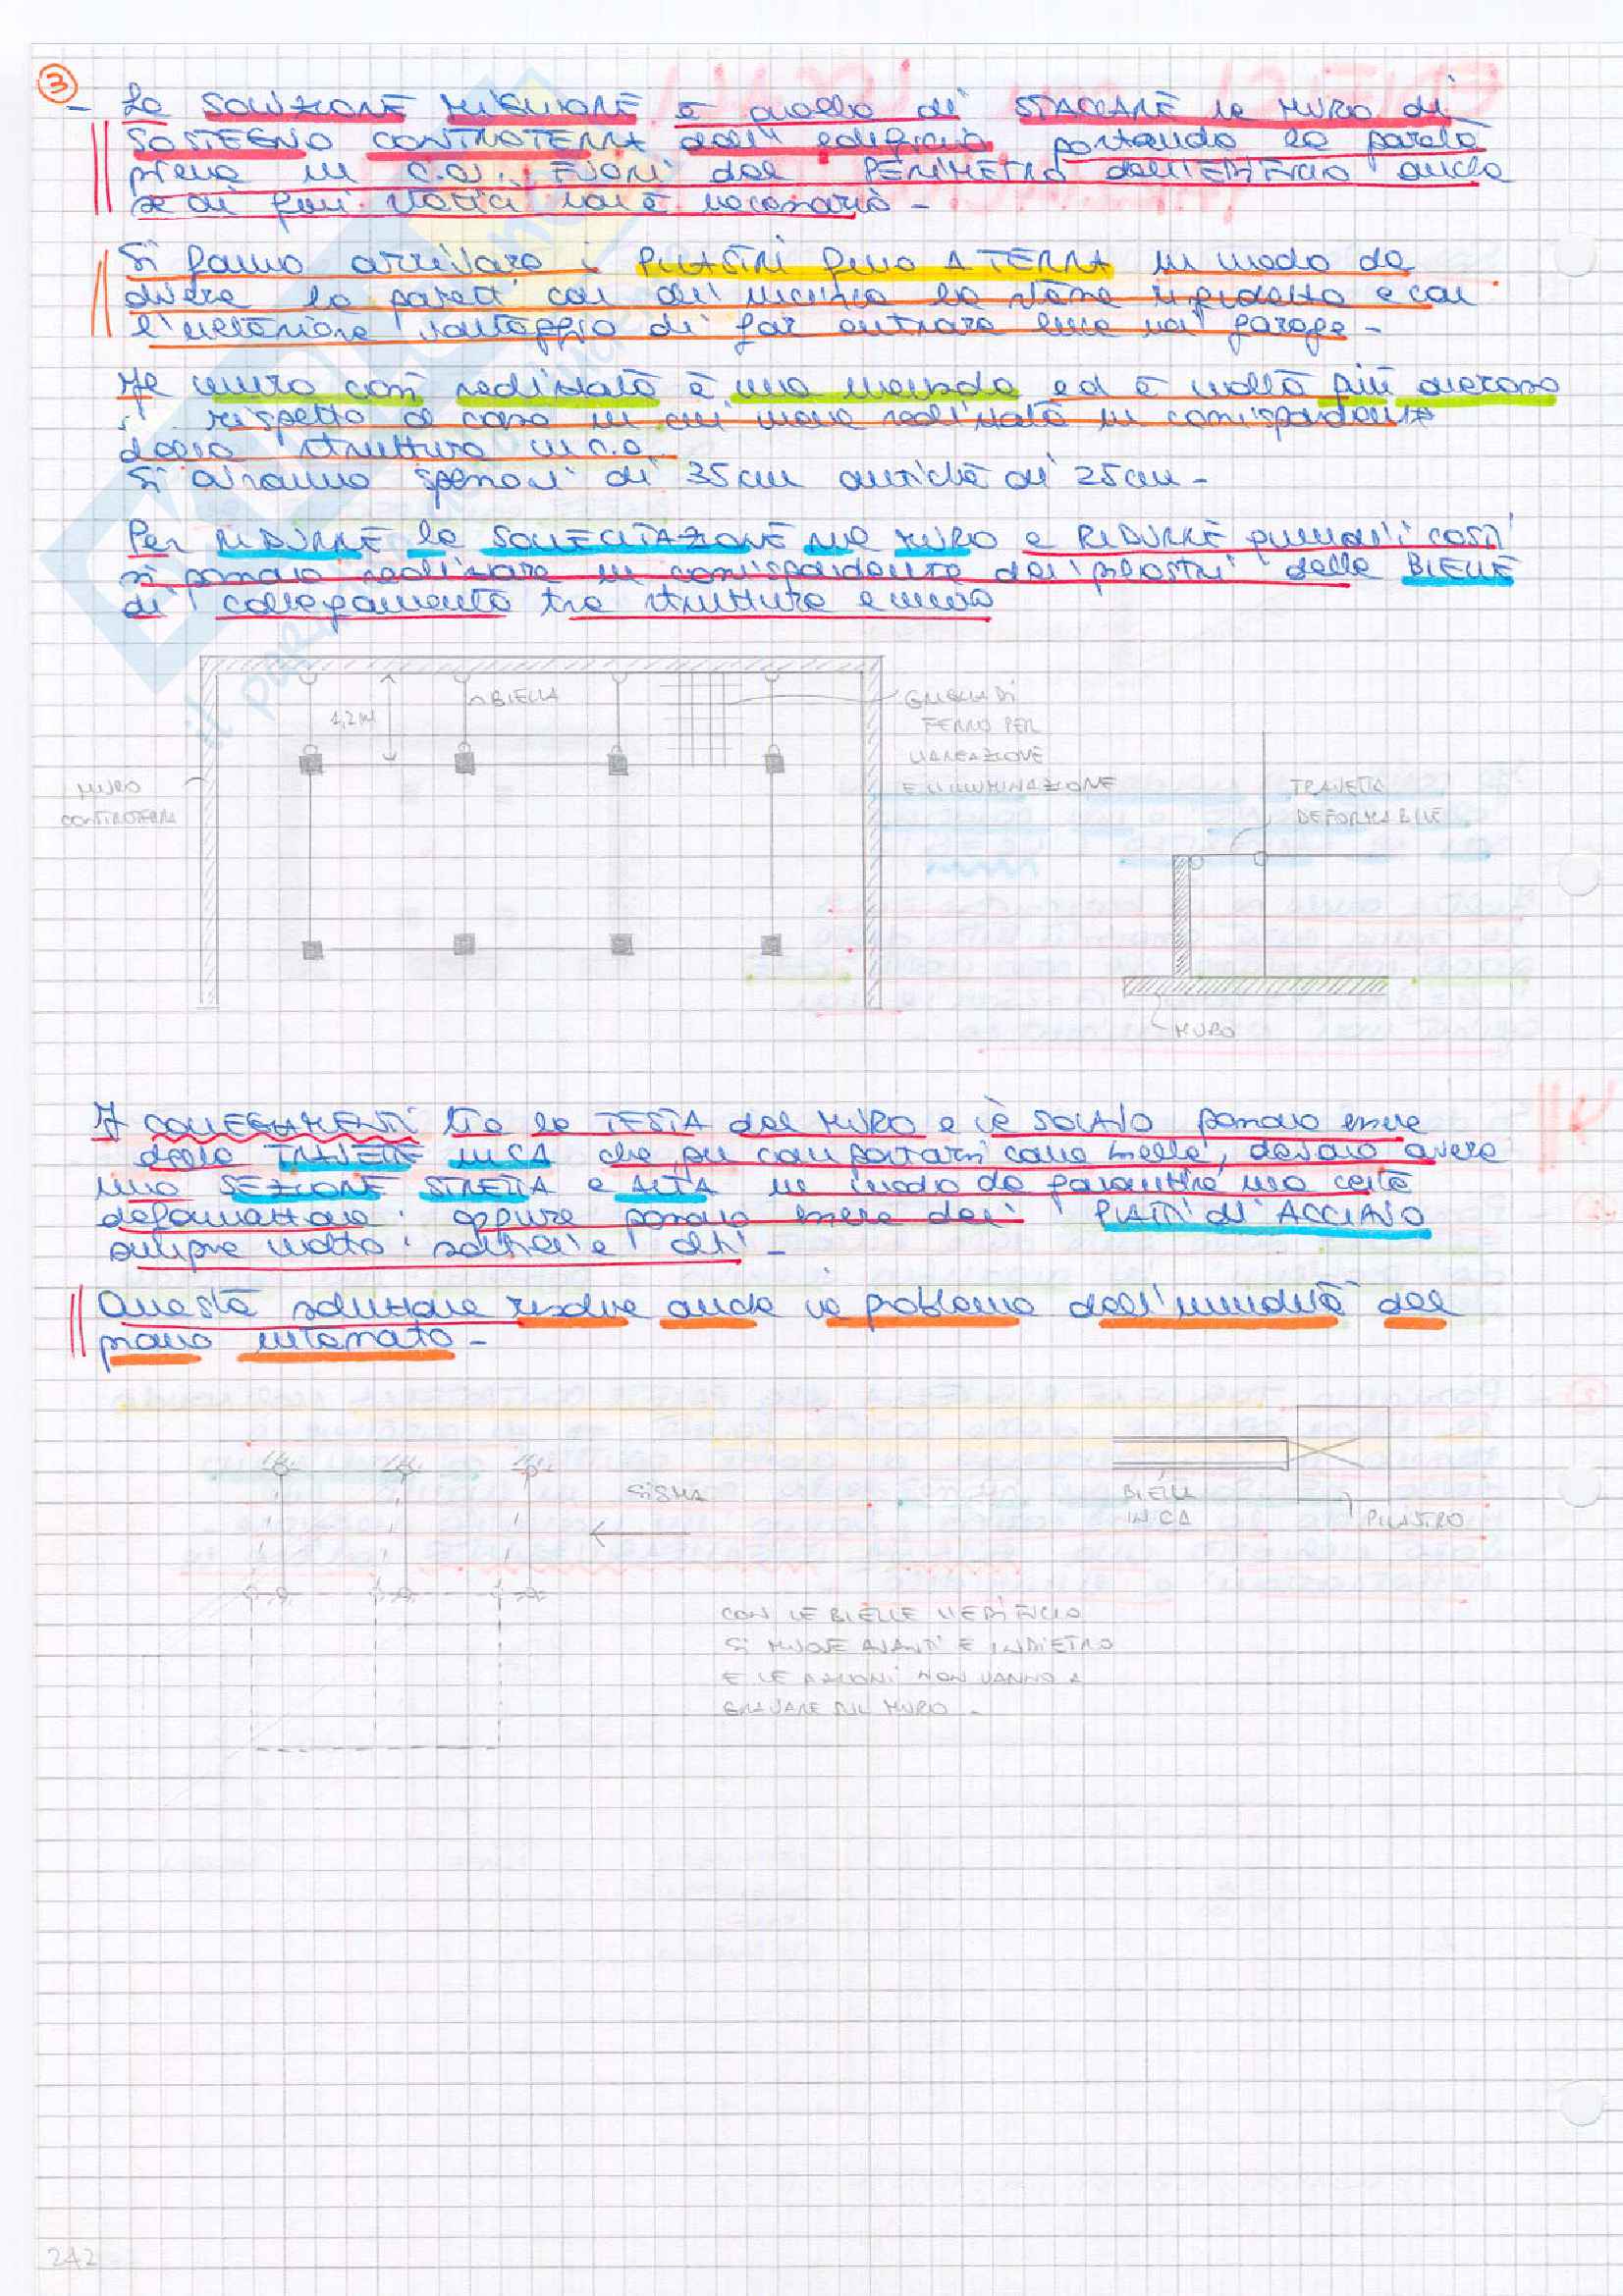 3
- La SOLUZIONE MIGLIORE è quella di STACCARE il MURO di
SOSTEGNO CONTROTERRA dall'edificio portando la parete
piena in C.A. FUORI dal PERIMETRO dell'EDIFICIO anche
se ai fini statici non è necessario -
Si fanno arrivare i PILASTRI fino A TERRA in modo da
avere le pareti con all'incirca la stessa rigidetta e con
l'ulteriore vantaggio di far entrare luce nei garage -
Il muro così realizzato è una mensola ed è molto più oneroso
rispetto al caso in cui viene realizzato in corrispondenza
della struttura in c.a.
Si avranno spessori di 35 cm anziché di 25 cm -
Per RIDURRE le SOLLECITAZIONE NEL MURO e RIDURRE quindi i costi
si possono realizzare in corrispondenza dei pilastri delle BIELLE
di collegamento tra struttura e muro
BIELLA
1,2 m
GRIGLIA DI
FERRO PER
L'AREAZIONE
E ILLUMINAZIONE
MURO
CONTROTERRA
TRAVETTA
DEFORMABILE
MURO
I COLLEGAMENTI tra la TESTA del MURO e il SOLAIO possono essere
delle TRAVETTE in CA che per comportarsi come bielle, devono avere
una SEZIONE STRETTA e ALTA in modo da garantire una certa
deformazione oppure possono essere dei PIATTI di ACCIAIO
sempre molto sottili e alti -
Questa soluzione risolve anche il problema dell'umidità del
piano interrato -
SISMA
BIELLA
IN CA
PILASTRO
CON LE BIELLE L'EDIFICIO
SI MUOVE AVANTI E INDIETRO
E LE AZIONI NON VANNO A
GRAVARE SUL MURO -
242